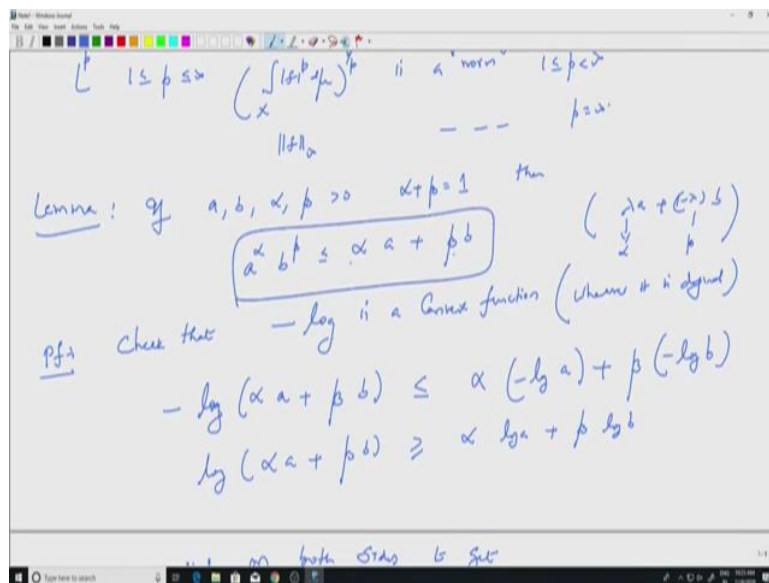 Note1 - Windows Journal
File Edit View Insert Actions Tools Help
L^p 1 ≤ p ≤ ∞ ( ∫_X |f|^p dμ )^{1/p} is a "norm" 1 ≤ p < ∞
||f||_∞ - - - p = ∞.
Lemma: If a, b, α, β > 0 α + β = 1 then
a^α b^β ≤ α a + β b ( λa + (1-λ) b )
α β
Pf:- Check that - log is a Convex function (wherever it is defined)
- log (α a + β b) ≤ α (-log a) + β (-log b)
log (α a + β b) ≥ α log a + β log b
on both sides to get
Type here to search